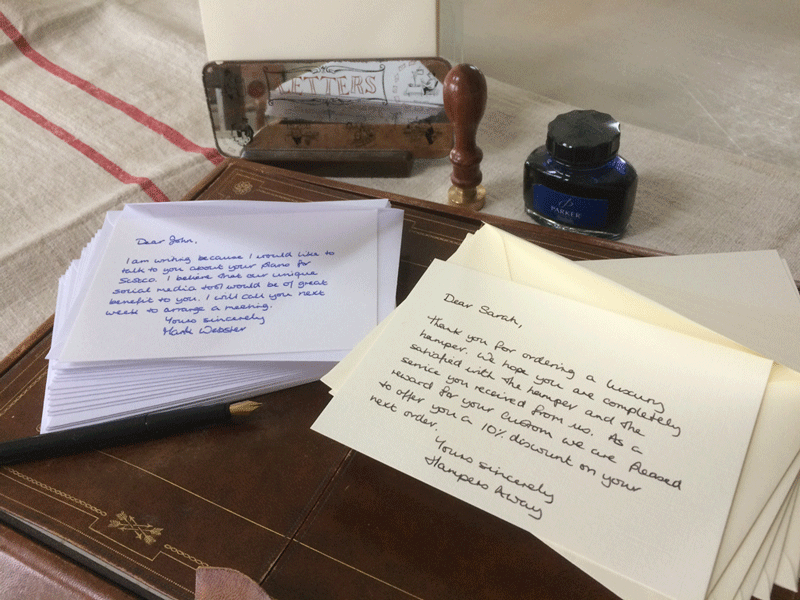 LETTERS
PARKER
Dear John,
I am writing because I would like to
talk to you about your plans for
Sistca. I believe that our unique
social media tool would be of great
benefit to you. I will call you next
week to arrange a meeting.
Yours sincerely
Mark Webster
Dear Sarah,
Thank you for ordering a luxury
hamper. We hope you are completely
satisfied with the hamper and the
service you received from us. As a
reward for your custom we are pleased
to offer you a 10% discount on your
next order.
Yours sincerely
Hampers Away